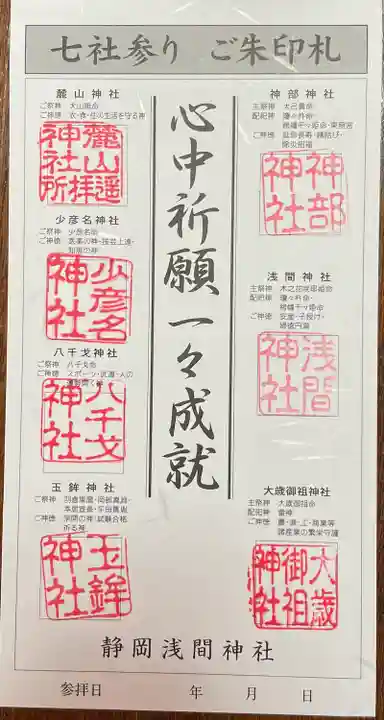 七社参り ご朱印札
神部神社
主祭神 大己貴命
配祀神 瓊々杵命・
栲幡千々姫命・東照宮
ご神徳 延命長寿・縁結び・
除災招福
神部神社
浅間神社
主祭神 木之花咲耶姫命
配祀神 瓊々杵命・
栲幡千々姫命
ご神徳 安産・子授け・
婦徳円満
浅間神社
大歳御祖神社
主祭神 大歳御祖命
配祀神 雷神
ご神徳 農・漁・工・商業等
諸産業の繁栄守護
大歳御祖神社
心中祈願一々成就
麓山神社
ご祭神 大山祇命
ご神徳 衣・食・住の生活を守る神
麓山神社遥拝所
少彦名神社
ご祭神 少彦名命
ご神徳 医薬の神・技芸上達・
知恵の神
少彦名神社
八千戈神社
ご祭神 八千戈命
ご神徳 スポーツ・武運・人の
運を開く神
八千戈神社
玉鉾神社
ご祭神 羽倉東麿・岡部真淵・
本居宣長・平田篤胤
ご神徳 学問の神・試験合格
祈る神
玉鉾神社
静岡浅間神社
参拝日 年 月 日